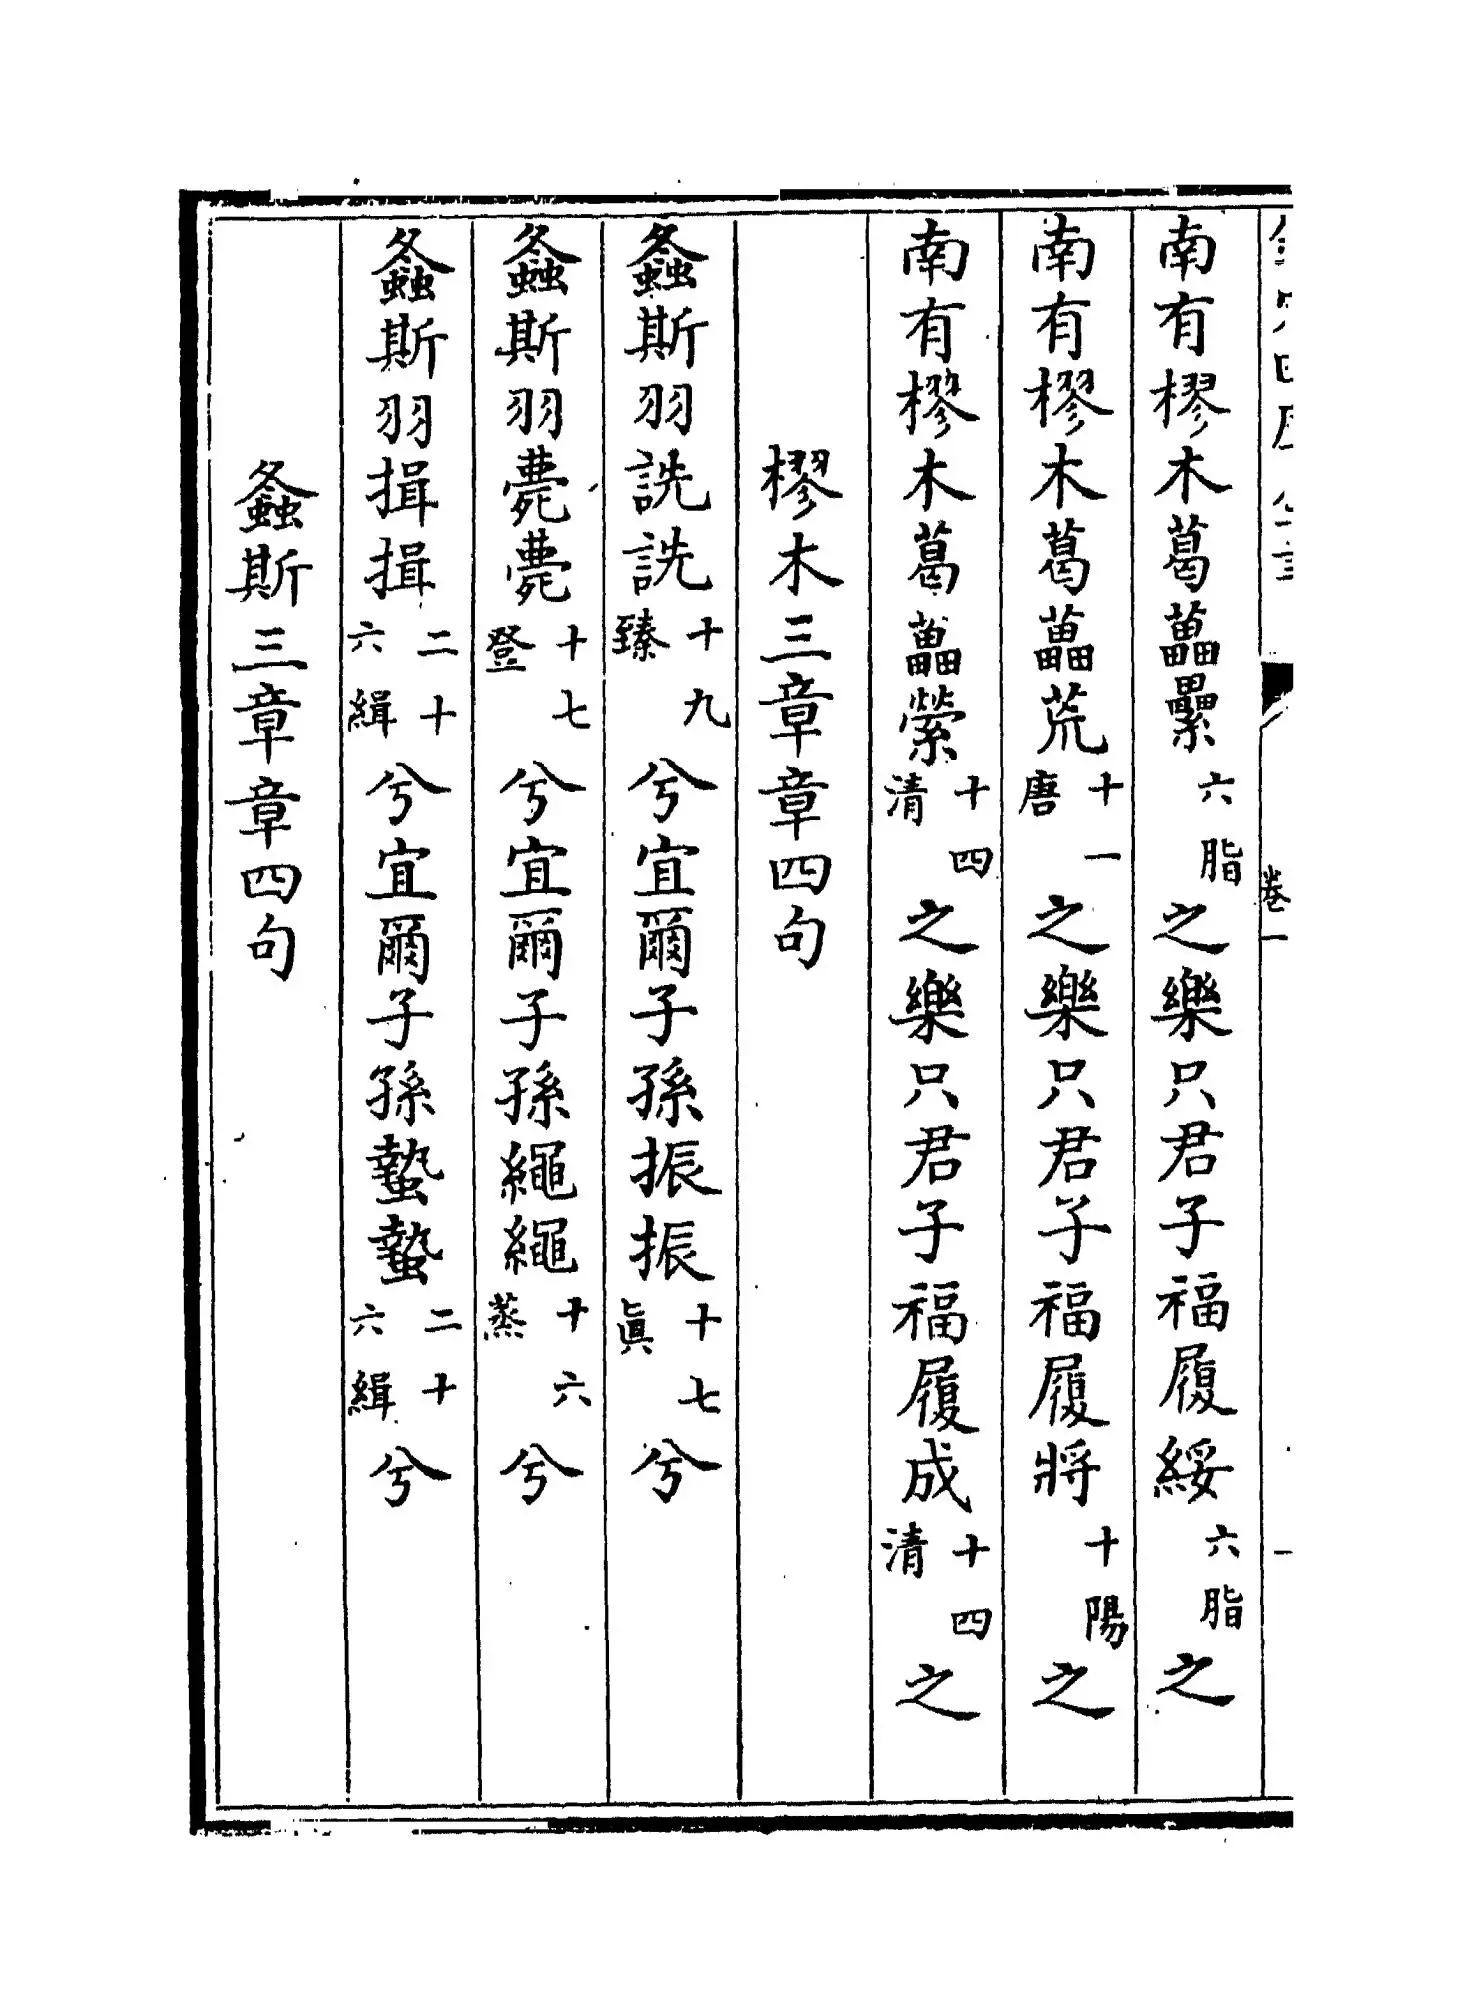 欽定四庫全書
卷一
南有樛木葛藟纍六脂之樂只君子福履綏六脂之
南有樛木葛藟荒十一唐之樂只君子福履將十陽之
南有樛木葛藟縈十四清之樂只君子福履成十四清之
樛木三章章四句
螽斯羽詵詵十九臻兮宜爾子孫振振十七真兮
螽斯羽薨薨十七登兮宜爾子孫繩繩十六蒸兮
螽斯羽揖揖二十六緝兮宜爾子孫蟄蟄二十六緝兮
螽斯三章章四句